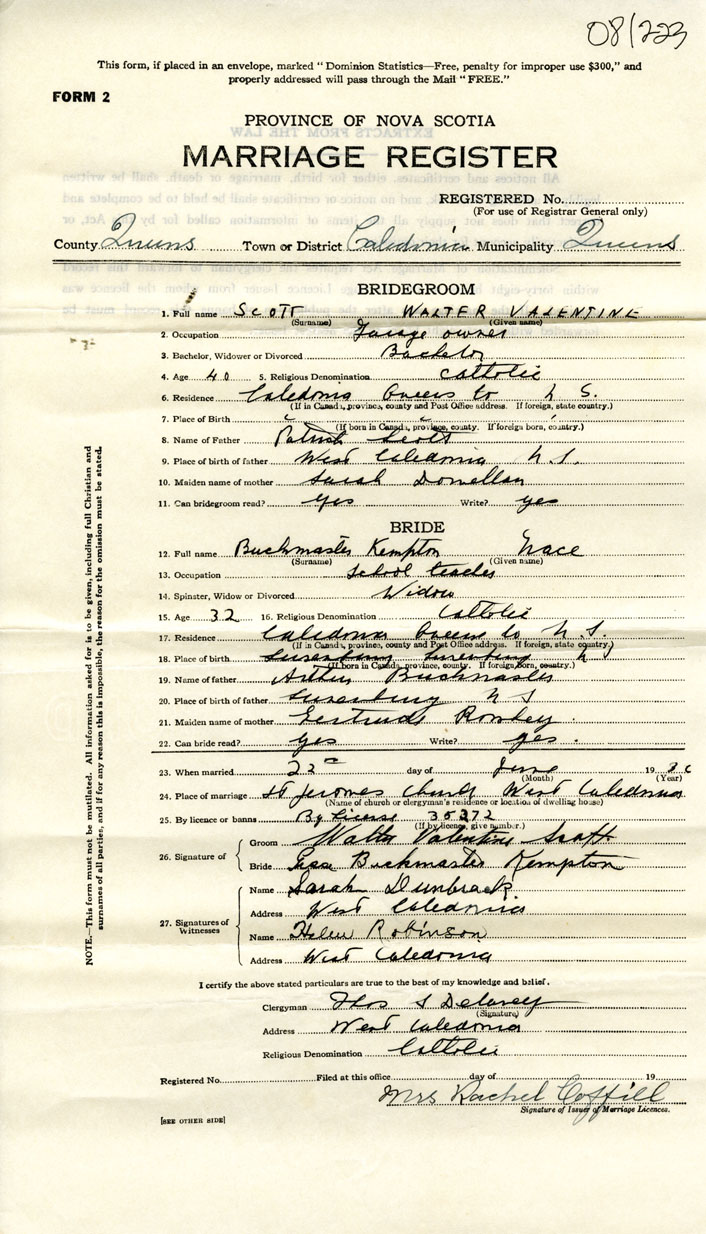 08/223
This form, if placed in an envelope, marked "Dominion Statistics—Free, penalty for improper use $300," and
properly addressed will pass through the Mail "FREE."
FORM 2
PROVINCE OF NOVA SCOTIA
MARRIAGE REGISTER
REGISTERED No.
(For use of Registrar General only)
County Queens Town or District Caledonia Municipality Queens
BRIDEGROOM
1. Full name SCOTT WALTER VALENTINE
(Surname) (Given name)
2. Occupation Garage owner
3. Bachelor, Widower or Divorced Bachelor
4. Age 40 5. Religious Denomination Catholic
6. Residence Caledonia Queens Co N. S.
(If in Canada, province, county and Post Office address. If foreign, state country.)
7. Place of Birth
(If born in Canada, province, county. If foreign born, country.)
8. Name of Father Patrick Scott
9. Place of birth of father West Caledonia N. S.
10. Maiden name of mother Sarah Donnellan
11. Can bridegroom read? yes Write? yes
BRIDE
12. Full name Buckmaster Kempton Grace
(Surname) (Given name)
13. Occupation School teacher
14. Spinster, Widow or Divorced Widow
15. Age 32 16. Religious Denomination Catholic
17. Residence Caledonia Queens Co N. S.
(If in Canada, province, county and Post Office address. If foreign, state country)
18. Place of birth Lunenburg Lunenburg N S
(If born in Canada, province, county. If foreign born, country.)
19. Name of father Arthur Buckmaster
20. Place of birth of father Lunenburg N S
21. Maiden name of mother Gertrude
22. Can bride read? yes Write? yes.
23. When married 22nd day of June 1936
(Month) (Year)
24. Place of marriage St Jeromes Church West Caledonia
(Name of church or clergyman's residence or location of dwelling house)
25. By licence or banns By License 35272
(If by licence, give number.)
26. Signature of
Groom Walter Valentine Scott
Bride Buckmaster Kempton
27. Signatures of Witnesses
Name Sarah Dunbrack
Address West Caledonia
Name Helen Robinson
Address West Caledonia
I certify the above stated particulars are true to the best of my knowledge and belief.
Clergyman Thos S Delaney
(Signature)
Address West Caledonia
Religious Denomination Catholic
Registered No. Filed at this office day of 19
Mrs Rachel Coffill
Signature of Issuer of Marriage Licences.
[SEE OTHER SIDE]
NOTE.—This form must not be mutilated. All information asked for is to be given, including full Christian and
surnames of all parties, and if for any reason this is impossible, the reason for the omission must be stated.